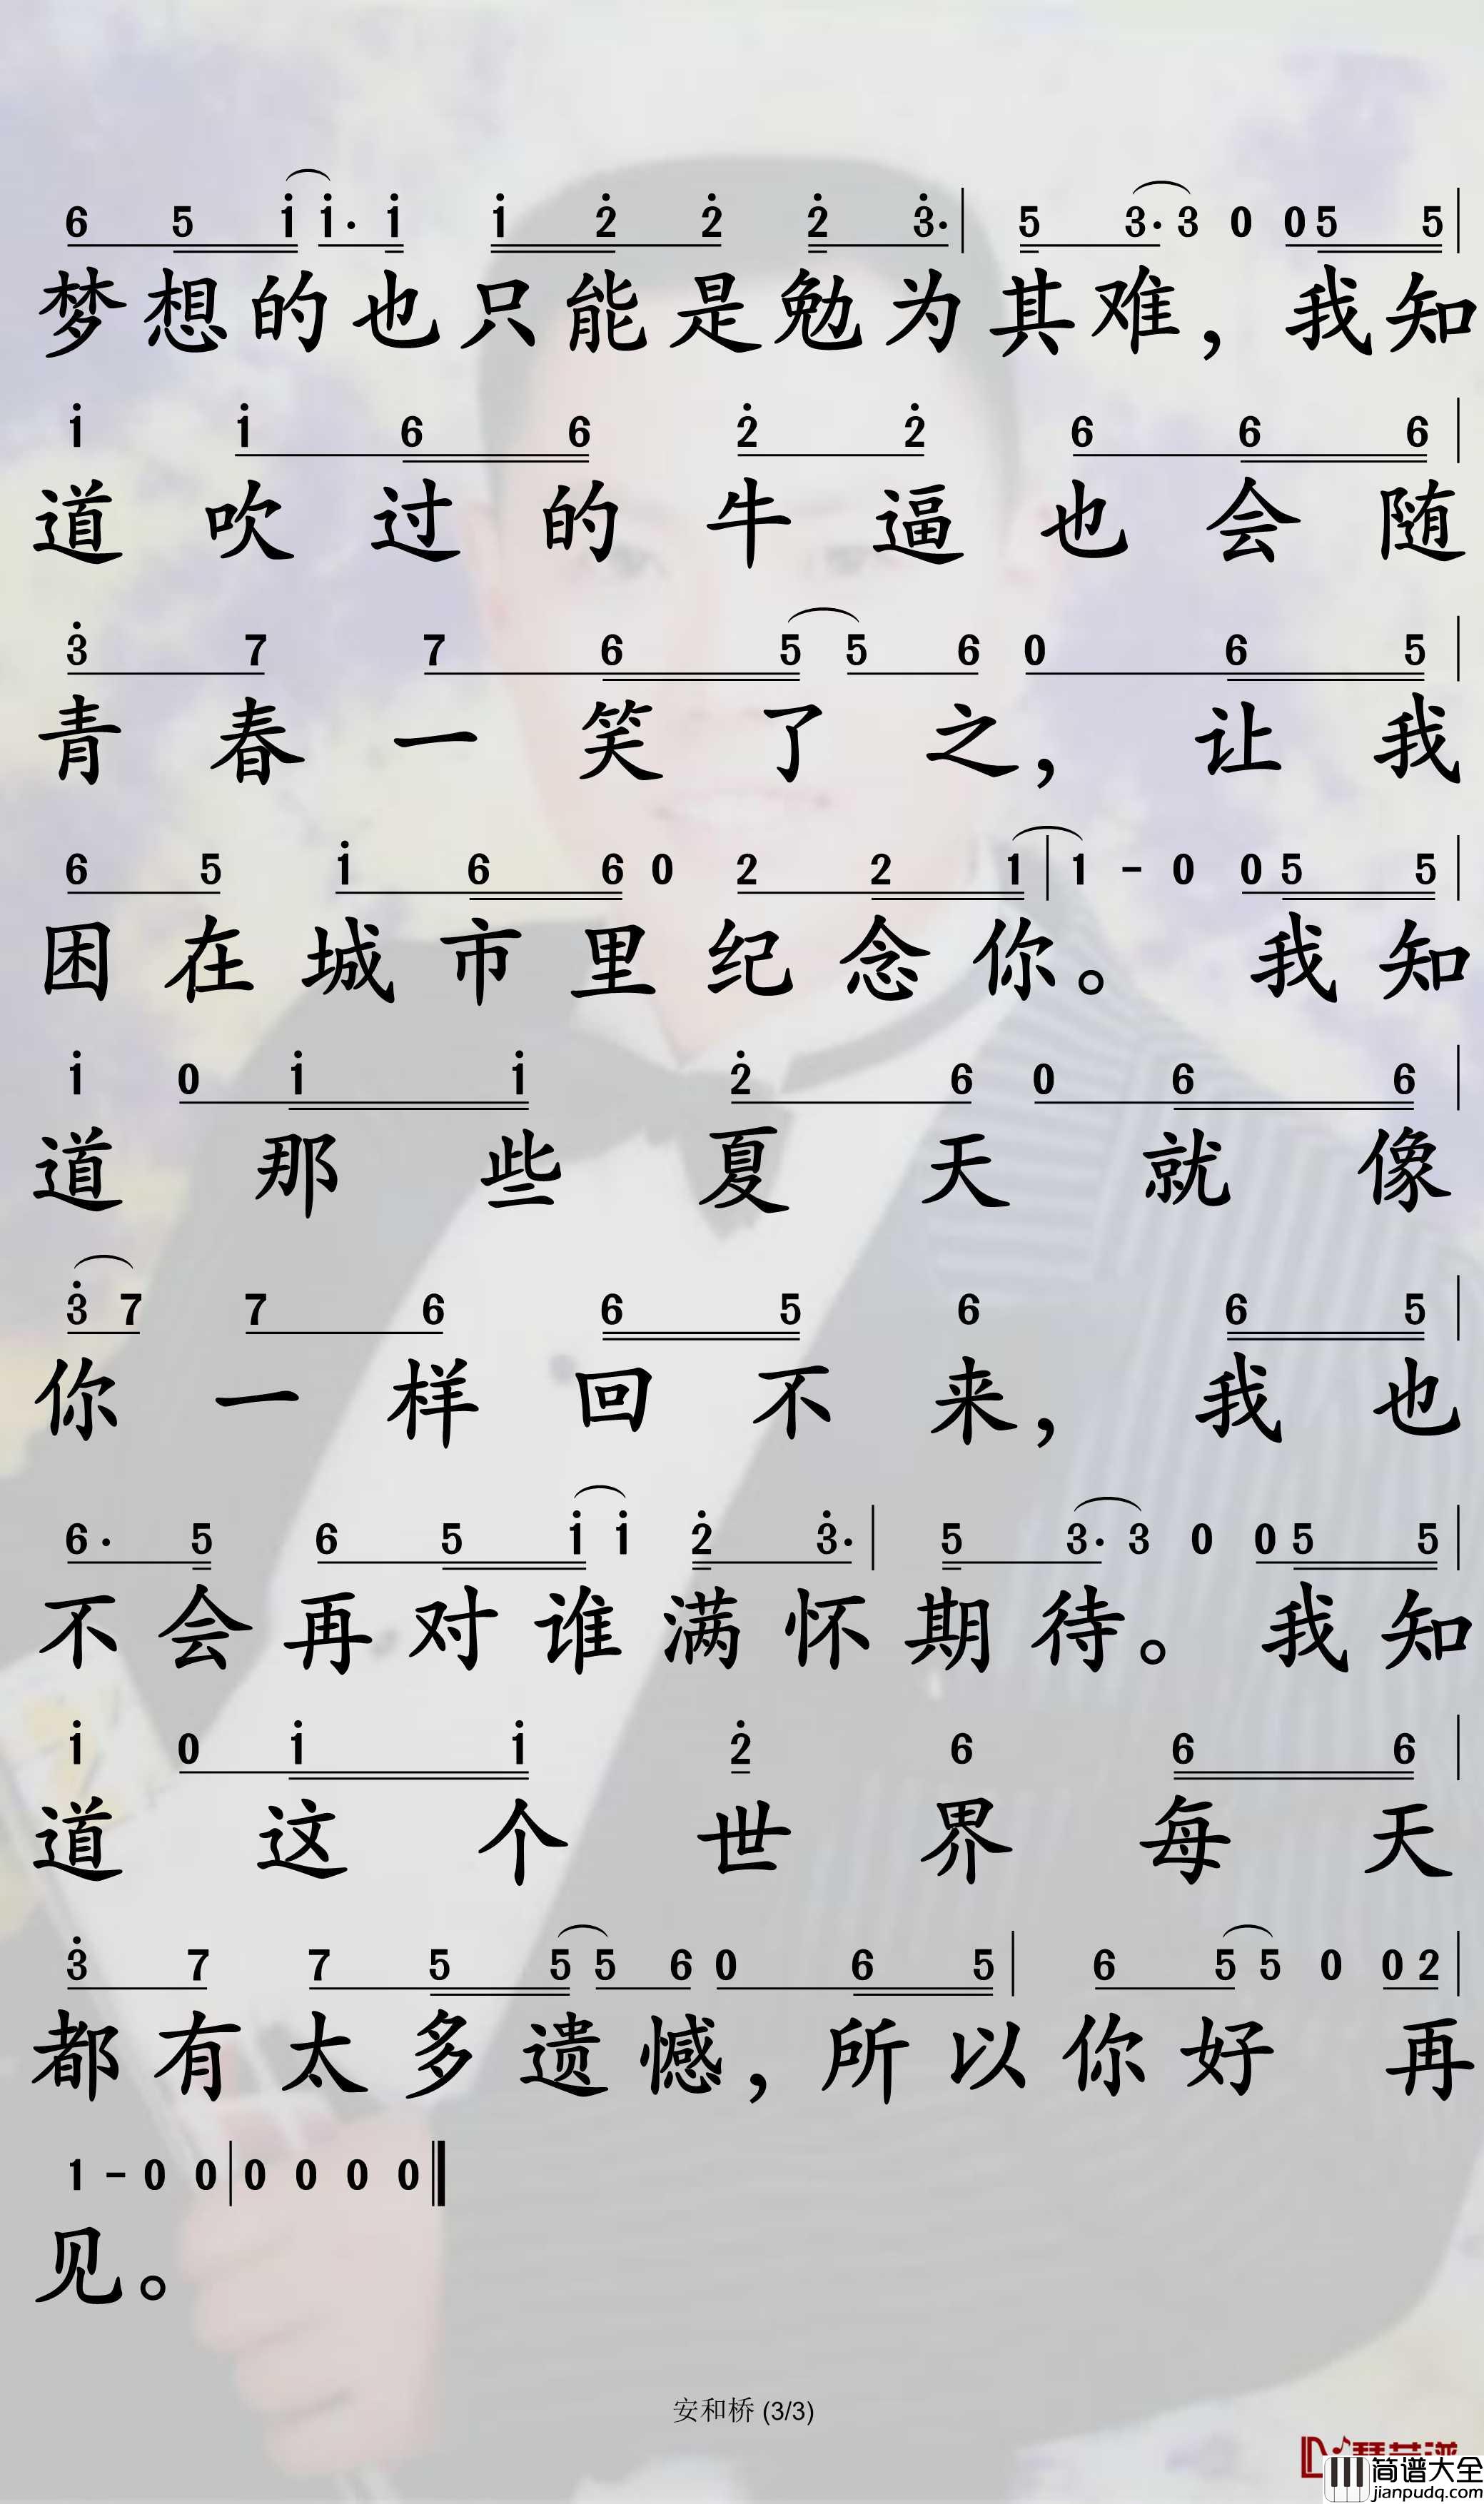 6 5 i i· i i 2̇ 2̇ 2̇ 3̇· | 5 3· 3 0 0 5 5 |
梦想的也只能是勉为其难，我知
i i 6 6 2̇ 2̇ 6 6 6 |
道吹过的牛逼也会随
3̇ 7 7 6 5 5 6 0 6 5 |
青春一笑了之，让我
6 5 i 6 6 0 2 2 1 | 1 - 0 0 5 5 |
困在城市里纪念你。我知
i 0 i i 2̇ 6 0 6 6 |
道那些夏天就像
3̇ 7 7 6 6 5 6 6 5 |
你一样回不来，我也
6· 5 6 5 i i 2̇ 3̇· | 5 3· 3 0 0 5 5 |
不会再对谁满怀期待。我知
i 0 i i 2̇ 6 6 6 |
道这个世界每天
3̇ 7 7 5 5 5 6 0 6 5 | 6 5 5 0 0 2 |
都有太多遗憾，所以你好再
1 - 0 0 | 0 0 0 0 ‖
见。
安和桥 (3/3)
简谱大全
jianpudq.com